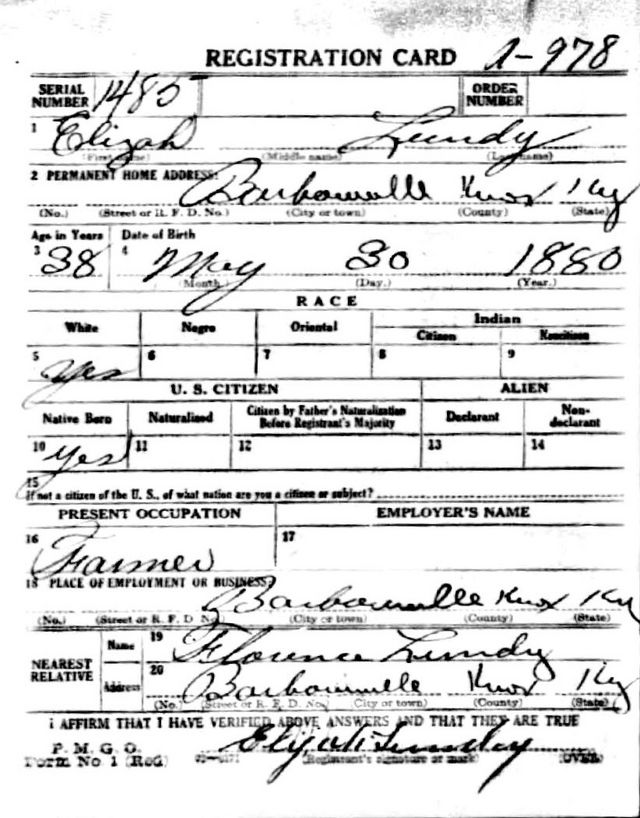 REGISTRATION CARD A-978
SERIAL NUMBER 1485 ORDER NUMBER
1 Elizah Lundy
(First name) (Middle name) (Last name)
2 PERMANENT HOME ADDRESS: Barbourville Knox Ky
(No.) (Street or R. F. D. No.) (City or town) (County) (State)
Age in Years Date of Birth
3 38 4 May 30 1880
(Month.) (Day.) (Year.)
RACE
White Negro Oriental Indian
Citizen Noncitizen
5 Yes 6 7 8 9
U. S. CITIZEN ALIEN
Native Born Naturalized Citizen by Father's Naturalization Before Registrant's Majority Declarant Non-declarant
10 Yes 11 12 13 14
15
If not a citizen of the U. S., of what nation are you a citizen or subject?
PRESENT OCCUPATION EMPLOYER'S NAME
16 Farmer 17
18 PLACE OF EMPLOYMENT OR BUSINESS: Barbourville Knox Ky
(No.) (Street or R. F. D. No.) (City or town) (County) (State)
NEAREST RELATIVE Name 19 Florence Lundy
Address 20 Barbourville Knox Ky
(No.) (Street or R. F. D. No.) (City or town) (County) (State)
I AFFIRM THAT I HAVE VERIFIED ABOVE ANSWERS AND THAT THEY ARE TRUE
P. M. G. O.
Form No 1 (Red) Elijah Lunday
(Registrant's signature or mark) (OVER)